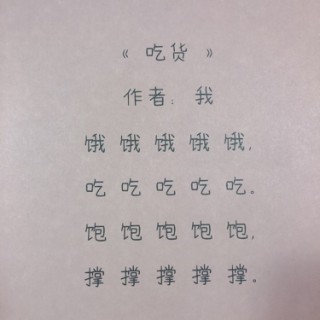 《 吃货 》
作者： 我
饿 饿 饿 饿 饿，
吃 吃 吃 吃 吃。
饱 饱 饱 饱 饱，
撑 撑 撑 撑 撑。